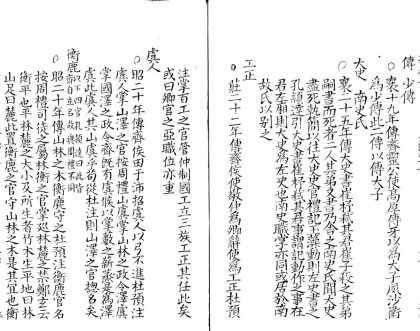 傅 少傅
○襄十九年傳齊靈公使高厚傅牙以為大子夙沙衛
為少傅此二傅以傅大子
大史 南史氏
○襄二十五年傳大史書曰崔杼弑其君崔子殺之其弟
嗣書而死者二人其弟又書乃舍之南史氏聞大史
盡死執簡以往大史書是禮記玉藻動則左史書之
孔穎達引大史書崔杼弑其君事謂記動作之事在
君左廂則大史為左史也南史職掌亦同或居於南
故氏以別之
工正
○莊二十二年傳齊侯使敬仲為卿辭使為工正杜預
注掌百工之官管仲制國工立三族工正其任此矣
或曰卿官之亞職位亦重
虞人
○昭二十年傳齊侯田于沛招虞人以弓不進杜預注
虞人掌山澤之官按周禮山虞掌山林之政令澤虞
掌國澤之政令齊既有虞候以掌藪之新蒸為澤
虞此虞人其山虞乎苟從杜注則山澤之官摠名矣
衡鹿 以下四官孔穎達曰此皆齊自立名故與周禮不同
○昭二十年傳山林之木衡鹿守之杜預注衡鹿官名
按周禮司徒之屬林衡之官掌巡林麓之禁鄭玄云
衡平也平林麓之大小及所生者竹木生平地曰林
山足曰麓此置衡鹿之官守山林之木是其宜也衡